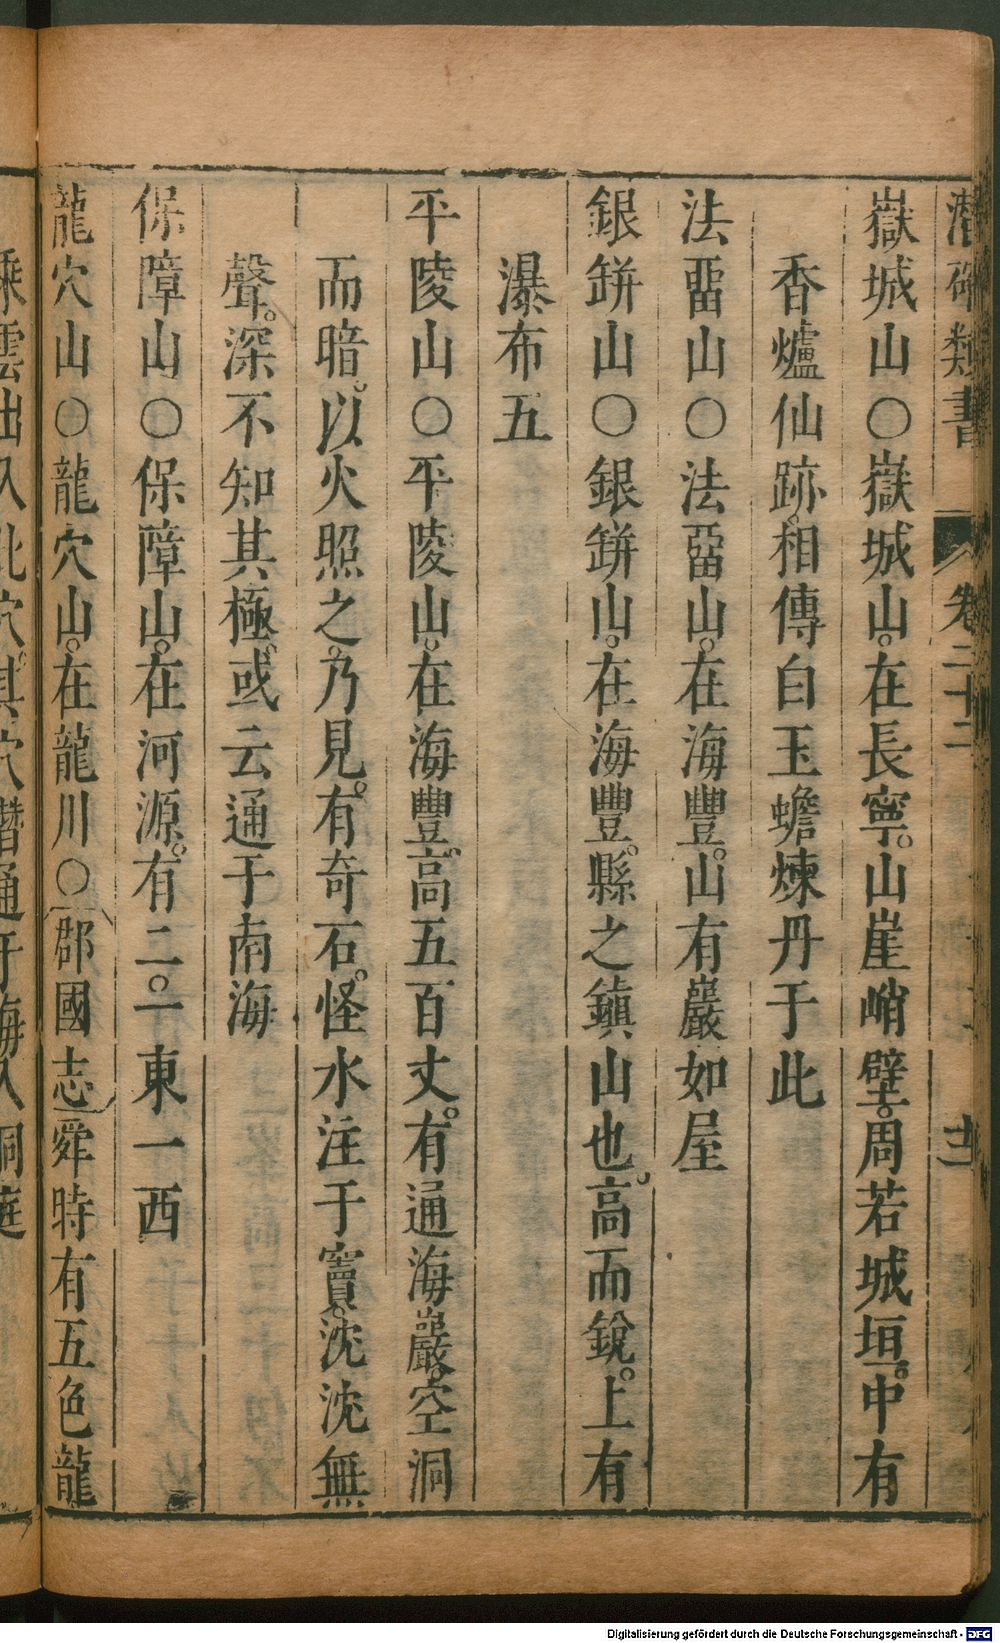 潛確類書 卷二十二 十三
嶽城山○嶽城山。在長寧。山崖峭壁。周若城垣。中有
香爐仙跡。相傳白玉蟾煉丹于此
法畱山○法畱山。在海豐。山有巖如屋
銀缾山○銀缾山。在海豐。縣之鎮山也。高而銳。上有
瀑布五
平陵山○平陵山。在海豐。高五百丈。有通海巖。空洞
而暗。以火照之。乃見。有奇石。怪水注于竇。沈沈無
聲。深不知其極。或云通于南海
保障山○保障山。在河源。有二。一東一西
龍穴山○龍穴山。在龍川○郡國志舜時有五色龍
乘雲出入此穴。其穴潛通于海入洞庭
Digitalisierung gefördert durch die Deutsche Forschungsgemeinschaft - DFG